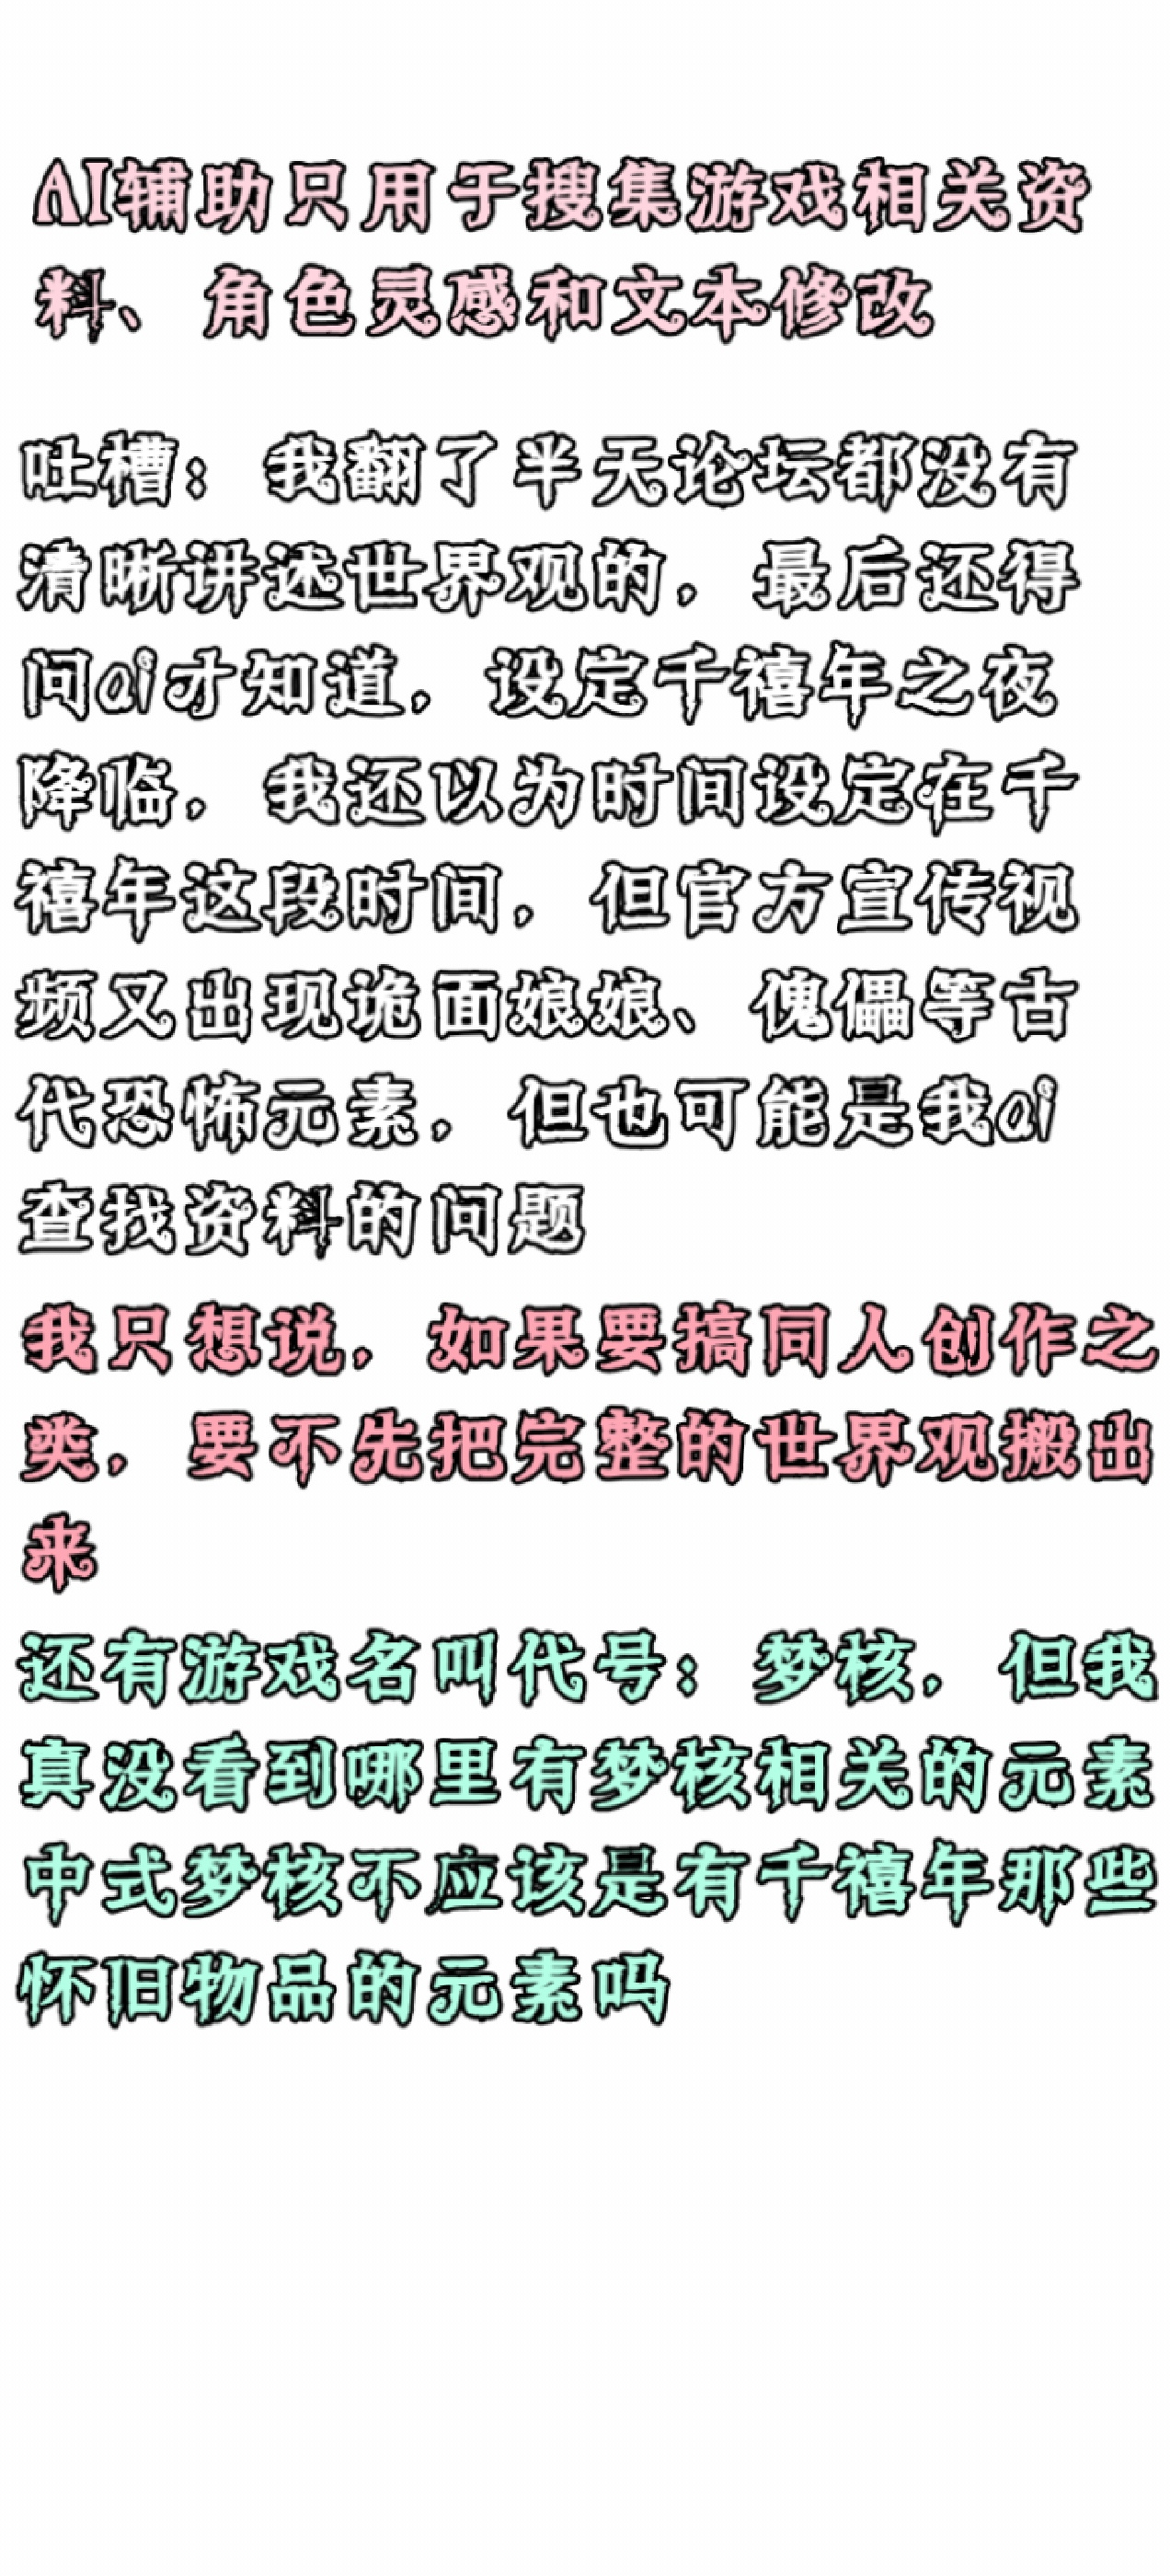 AI辅助只用于搜集游戏相关资
料、角色灵感和文本修改
吐槽：我翻了半天论坛都没有
清晰讲述世界观的，最后还得
问ai才知道，设定千禧年之夜
降临，我还以为时间设定在千
禧年这段时间，但官方宣传视
频又出现诡面娘娘、傀儡等古
代恐怖元素，但也可能是我ai
查找资料的问题
我只想说，如果要搞同人创作之
类，要不先把完整的世界观搬出
来
还有游戏名叫代号：梦核，但我
真没看到哪里有梦核相关的元素
中式梦核不应该是有千禧年那些
怀旧物品的元素吗